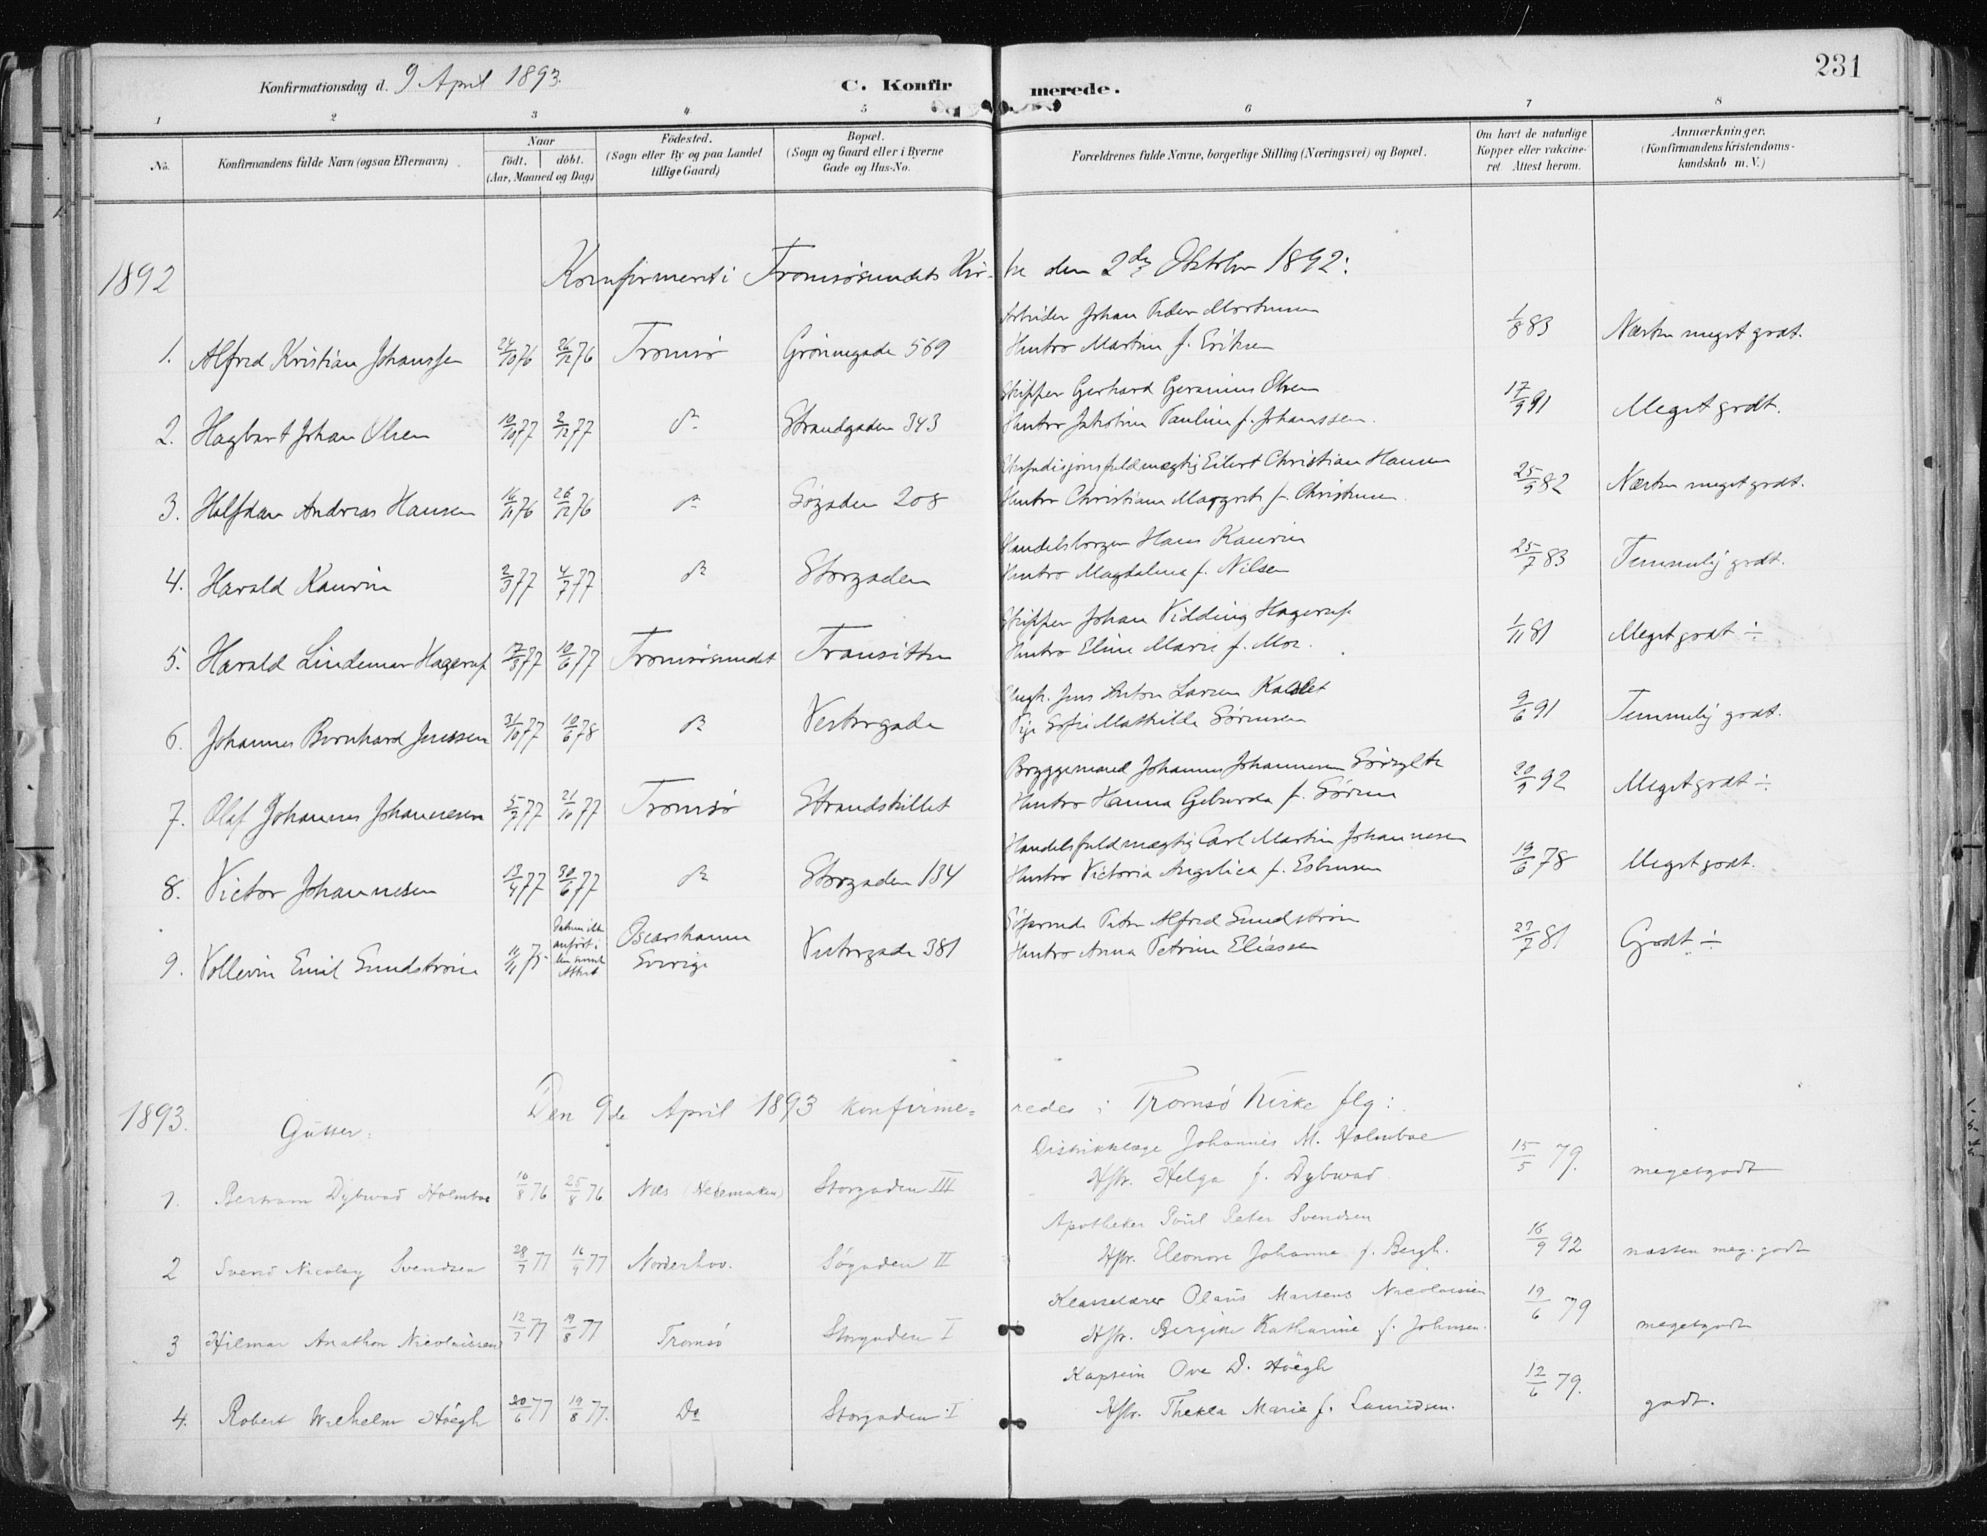 231
Konfirmationsdag d. 9 April 1893.
C. Konfirmerede.
1 2 3 4 5 6 7 8
No. Konfirmandens fulde Navn (ogsaa Efternavn) Naar födt. döbt. (Aar, Maaned og Dag) Födested. (Sogn eller By og paa Landet tillige Gaard) Bopæl. (Sogn og Gaard eller i Byerne Gade og Hus-No. Forældrenes fulde Navne, borgerlige Stilling (Næringsvei) og Bopæl. Om havt de naturlige Kopper eller vakcineret Attest herom. Anmærkninger. (Konfirmandens Kristendomskundskab m. V.)
1892 Konfirmert i Tromsøsundets Kirke den 2den Oktober 1892:
Arbeider Johan Peder Mortensen
1. Alfred Kristian Johanssen 24/10 76 26/12 76 Tromsø Grönnegade 569 Hustro Martine f. Eriksen 1/8 83 Næsten meget godt.
Skipper Gerhard Geranius Olsen
2. Hagbart Johan Olsen 10/10 77 2/12 77 do Strandgaden 343 Hustro Jakobine Pauline f. Johanssen. 17/9 91 Meget godt.
Expedisjonsfuldmægtig Eilert Christian Hansen
3. Halfdan Andreas Hansen 16/11 76 26/12 76 do Søgaden 208 Hustro Christiane Margrete f. Christensen. 25/9 82 Næsten meget godt.
Handelsborger Hans Kaurin
4. Harald Kaurin 2/3 77 4/7 77 do Storgaden Hustro Magdalena f. Nilsen 25/7 83 Temmelig godt.
Skipper Johan Vidding Hagerup
5. Harald Lindeman Hagerup 17/3 77 10/6 77 Tromsøsundet Transitten Hustro Eline Marie f. Moe. 1/11 81 Meget godt ÷
Ungk. Jens Anton Larsen
6. Johannes Bernhard Jenssen 31/10 77 10/6 78 do Vestregade Pige Sofie Mathilde Sørensen 9/6 91 Temmelig godt.
Bryggemand Johannes Johannesen
7. Olaf Johannes Johannesen 5/7 77 21/10 77 Tromsø Strandskillet Hustro Hanna f. 20/9 92 Meget godt ÷
Handelsfuldmægtig Carl Martin Johannesen
8. Victor Johannesen 13/4 77 30/6 77 do Storgaden 134 Hustro Victoria Angelica f. Esbensen 19/6 78 Meget godt.
Peter Alfred Sundström
9. Emil Sundström 11/11 75 Datum ikke anført i Attest Oscarshamn Sverige Vestregade 381 Hustro Anna Petrine Eliassen 23/7 81 Godt ÷
1893. Den 9de April 1893 konfirmeredes i Tromsö Kirke flg:
Gutter.
Distriktslæge Johannes M. Holmboe
1. Bertram Dybwad Holmboe 10/8 76 25/8 76 Næs (Hedemarken) Storgaden III Hstr. Helga f. Dybwad 15/5 79. megetgodt
Apotheker Poul Peter Svendsen
2 Svend Nicolay Svendsen 28/7 77 16/9 77 Norderhov. Søgaden II Hstr. Eleonore Johanna f. Bergh. 16/9 92 næsten meg. godt
Klasselærer Olaus Martens Nicolaissen
3 Hilmar Anathon Nicolaissen 12/7 77 19/8 77 Tromsö Storgaden I Hstr. Bergitte Katharine f. Johnsen. 19/6 79 megetgodt
Kaptein Ove D. Höegh
4. Robert Wilhelm Höegh 20/6 77 19/8 77. Do Storgaden I Hstr. Thekla Marie f. Lauridsen. 12/6 79. godt.